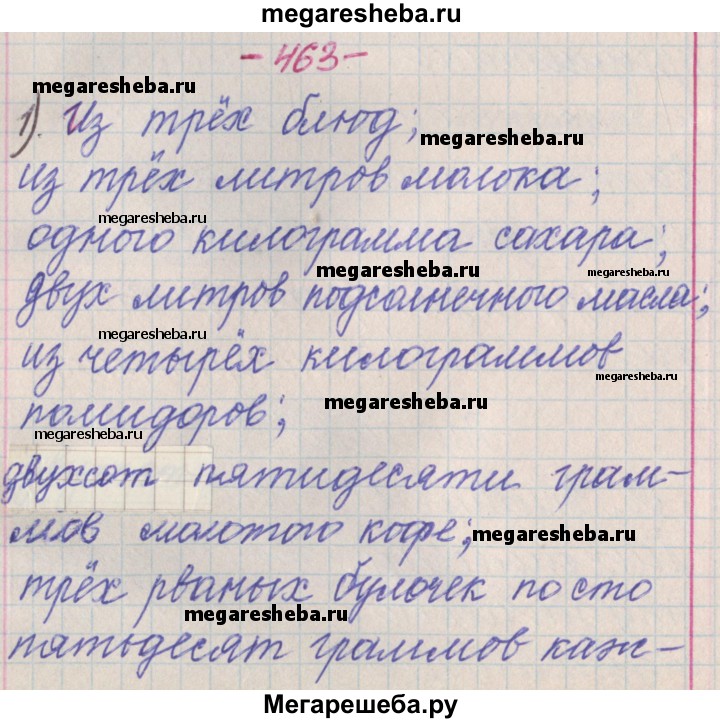 megaresheba.ru
- 463 -
megaresheba.ru
1). Из трёх блюд;
megaresheba.ru
из трёх литров молока;
megaresheba.ru
одного килограмма сахара;
megaresheba.ru megaresheba.ru
двух литров подсолнечного масла;
megaresheba.ru
из четырёх килограммов
megaresheba.ru
помидоров;
megaresheba.ru
megaresheba.ru
двухсот пятидесяти грам-
мов молотого кофе;
megaresheba.ru
трёх рваных булочек по сто
megaresheba.ru
пятьдесят граммов каж-
Мегарешеба.ру